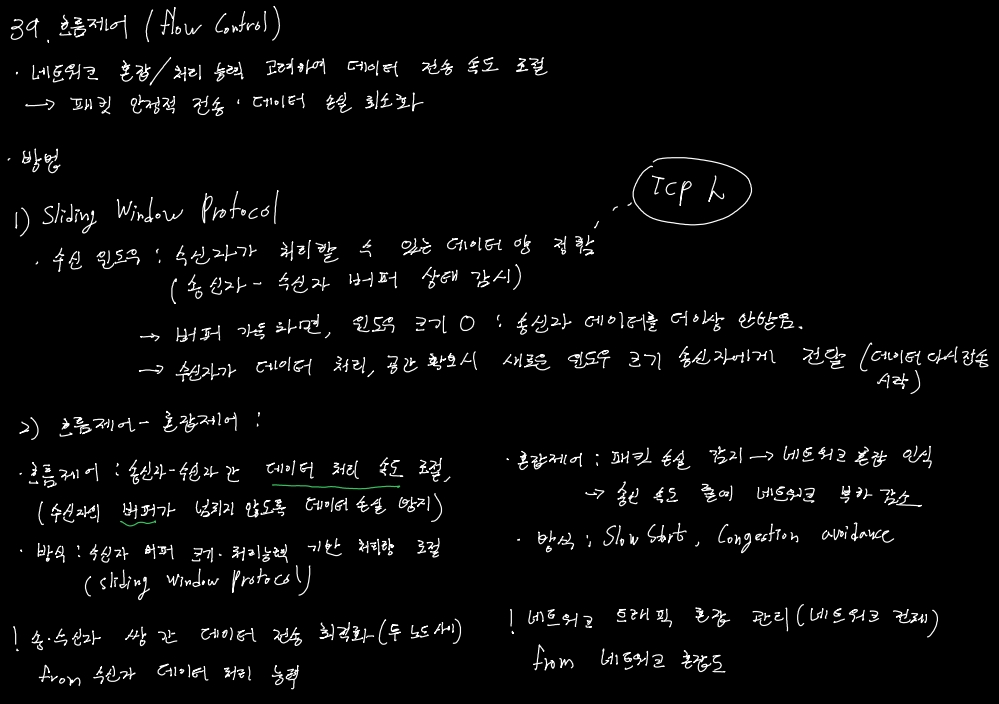 39. 흐름제어 (Flow Control)
· 네트워크 혼잡/처리 능력 고려하여 데이터 전송 속도 조절
→ 패킷 안정적 전송 · 데이터 손실 최소화
· 방법
1) Sliding Window Protocol
TCP
· 수신 윈도우 : 수신자가 처리할 수 있는 데이터 양 정함
(송신자 - 수신자 버퍼 상태 감시)
→ 버퍼 가득 차면, 윈도우 크기 0 : 송신자 데이터를 더이상 안받음.
→ 수신자가 데이터 처리, 공간 확보시 새로운 윈도우 크기 송신자에게 전달 (데이터 다시 전송
시작)
2) 흐름제어 - 혼잡제어 :
· 흐름제어 : 송신자-수신자 간 데이터 처리 속도 조절,
(수신자의 버퍼가 넘치지 않도록 데이터 손실 방지)
· 방식 : 수신자 버퍼 크기·처리능력 기반 처리량 조절
(Sliding Window Protocol)
! 송·수신자 쌍 간 데이터 전송 최적화 (두 노드 세)
from 수신자 데이터 처리 능력
· 혼잡제어 : 패킷 손실 감지 → 네트워크 혼잡 인식
→ 송신 속도 줄여 네트워크 부하 감소
· 방식 : Slow Start, Congestion avoidance
! 네트워크 트래픽 혼잡 관리 (네트워크 전체)
from 네트워크 혼잡도